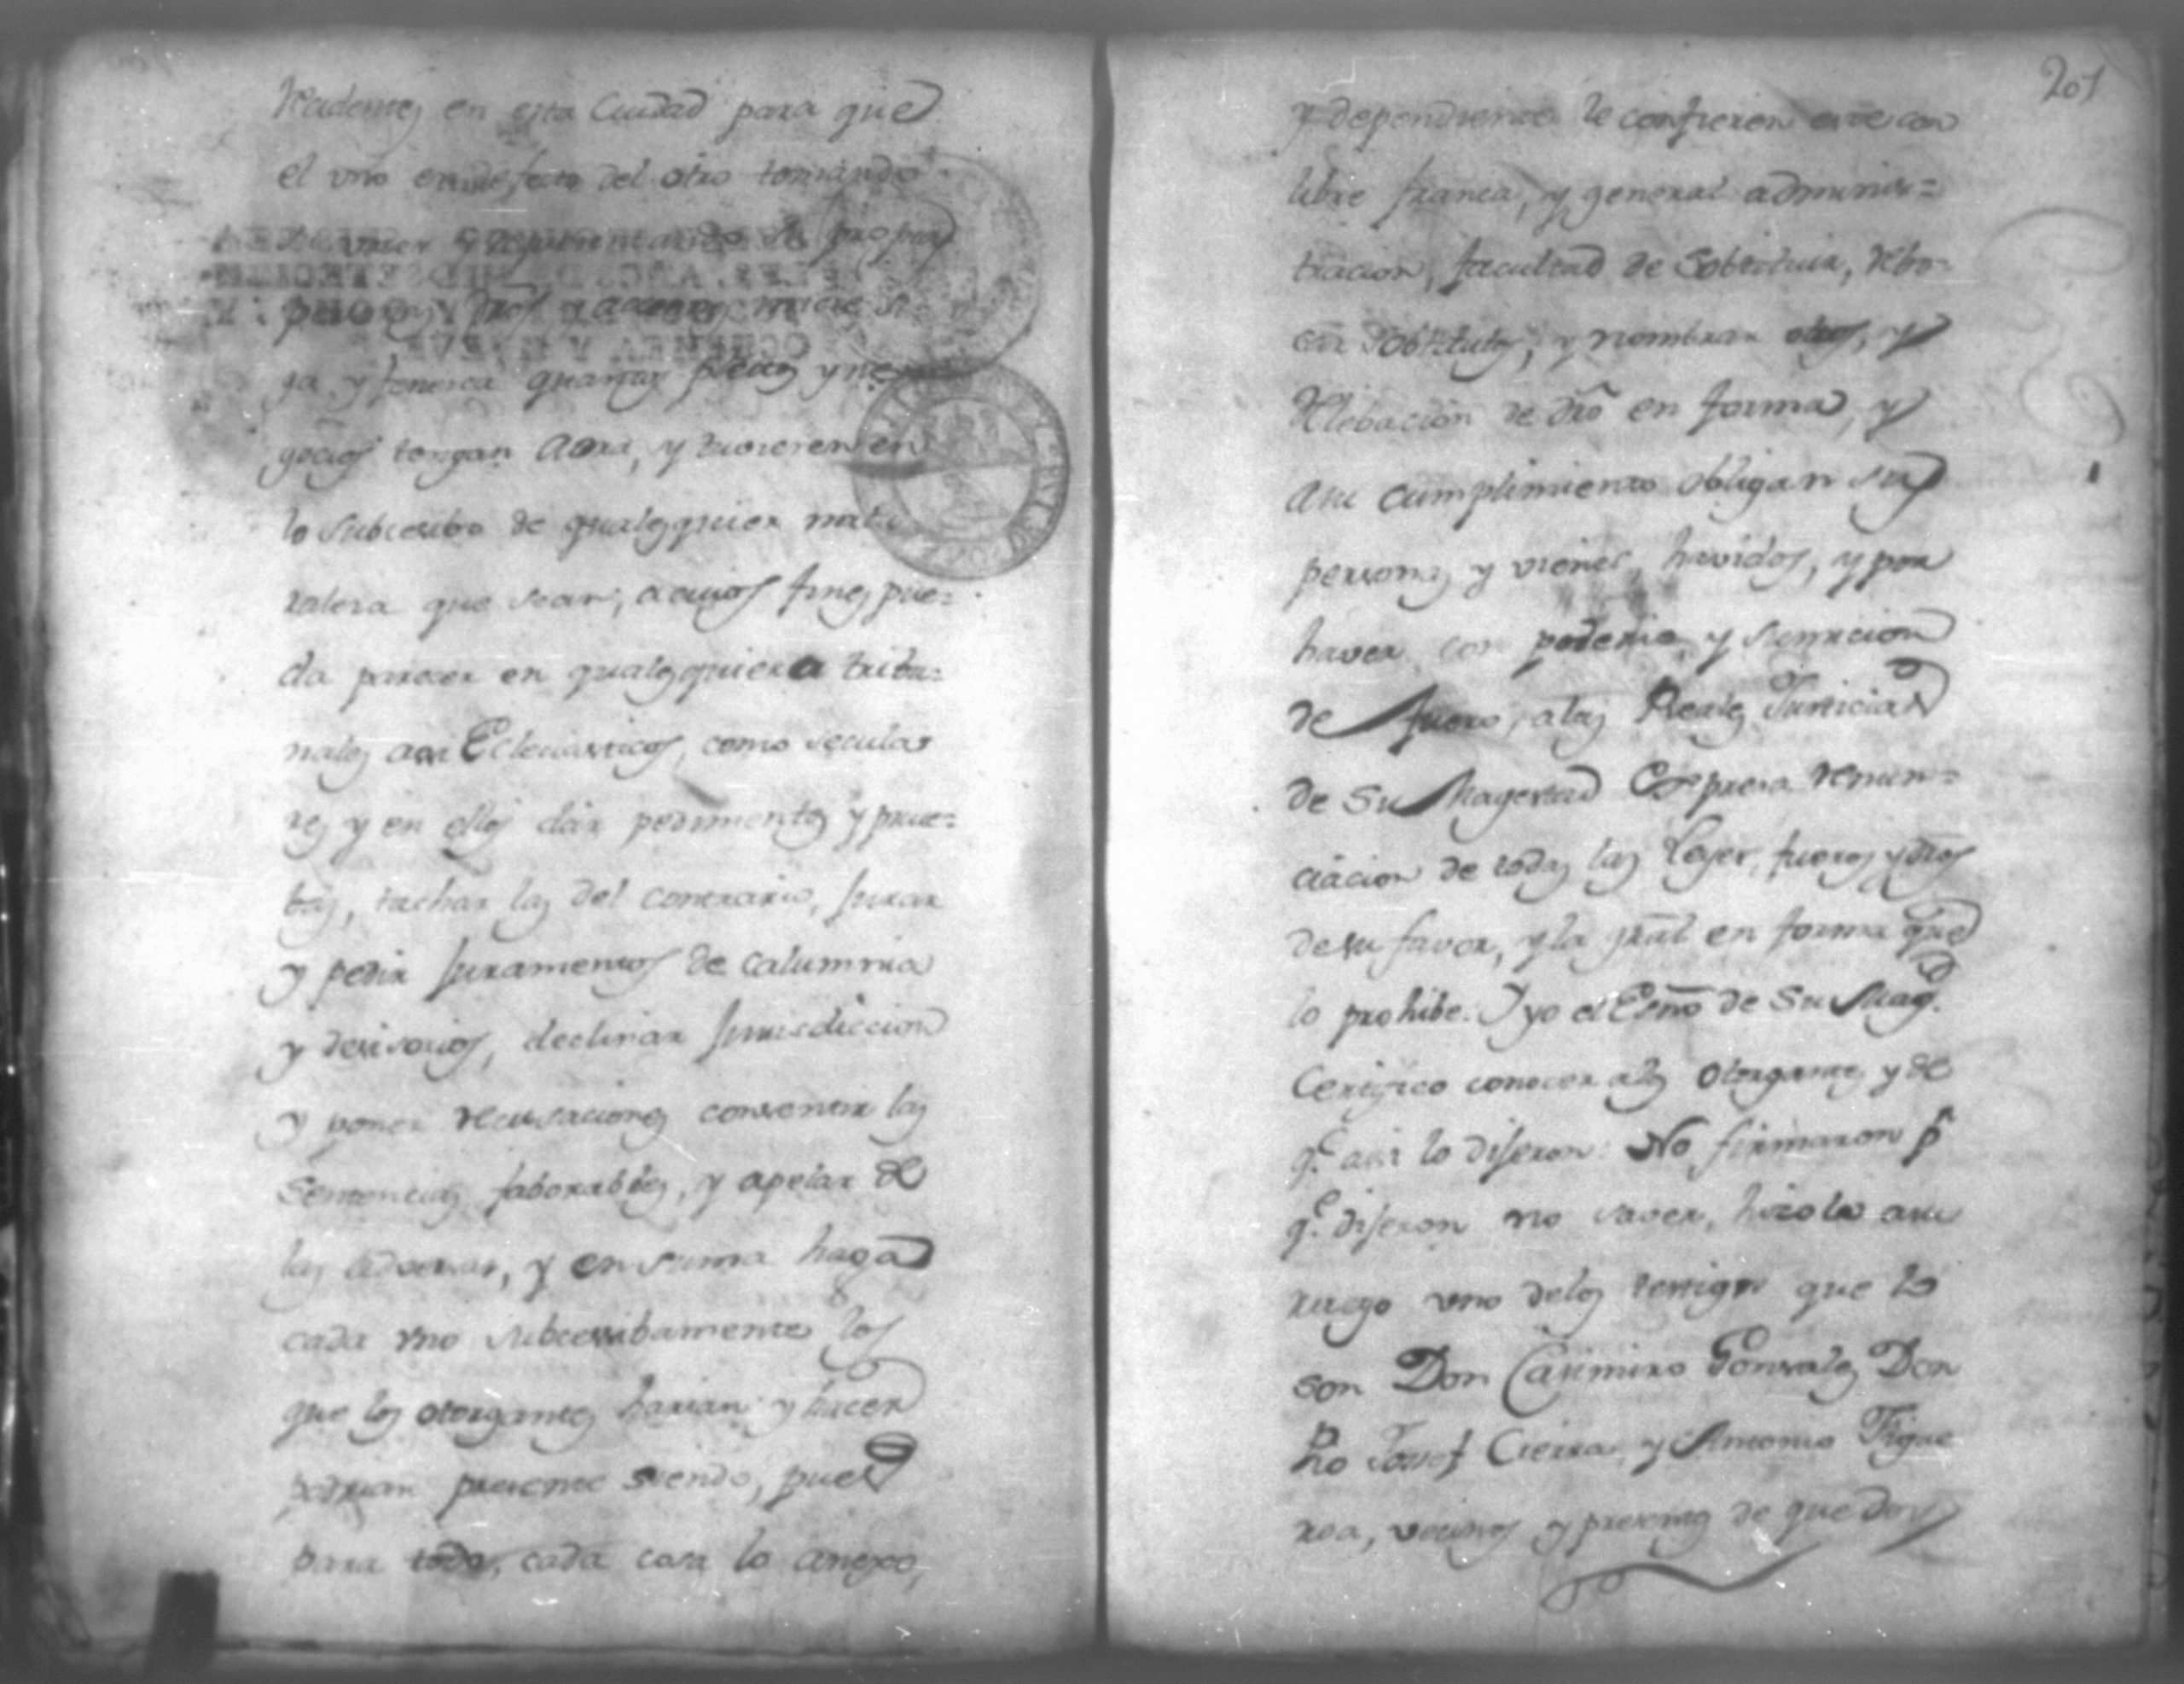 en esta Ciudad para que
el vno en defecto del otro tomando
su voz y representando sus propias
personas, dros y acciones inicie si-
ga y fenesca quantos pleitos y ne-
gocios tengan aora, y tuvieren en
lo subcesibo de qualesquier natu-
raleza que sean, a cuios fines pue=
da parecer en qualesquiera tribu=
nales asi Eclesiasticos, como secula
res y en ellos dar pedimentos y prue=
bas, tachar las del contrario, jurar
y pedir juramentos de calumnia
y desisorios, declinar jurisdiccion
y poner recusaciones consentir las
sentencias faborables, y apelar de
las adversas, y en suma haga
cada vno subcesibamente los
que los otorgantes harian y hacer
podrian presente siendo, pues
para todo, cada cosa lo anexo,
201
y dependiente le confieren este con
libre franca, y general adminis=
tracion, facultad de Sobstituir, rebo=
car Sobstitutos, y nombrar otros, y
relebacion de dro en forma, y
a su cumplimiento obligan sus
personas y vienes havidos, y por
haver con poderio, y sumicion
de fuero, a las Reales Justicias
de Su Magestad Espresa renun=
ciacion de todas las Leyes, fueros y dros
de su favor, y la gral en forma que
lo prohibe. Y yo el Esno de Su Magd.
Certifico conocer a los otorgantes y de
qe. asi lo dijeron: No firmaron pr
qe. dijeron no saver, hizolo a su
ruego vno de los testigos que lo
son Don Casimiro Gonzales Don
Josef Cieza, y Antonio Figue
roa, vecinos y presentes de que doy